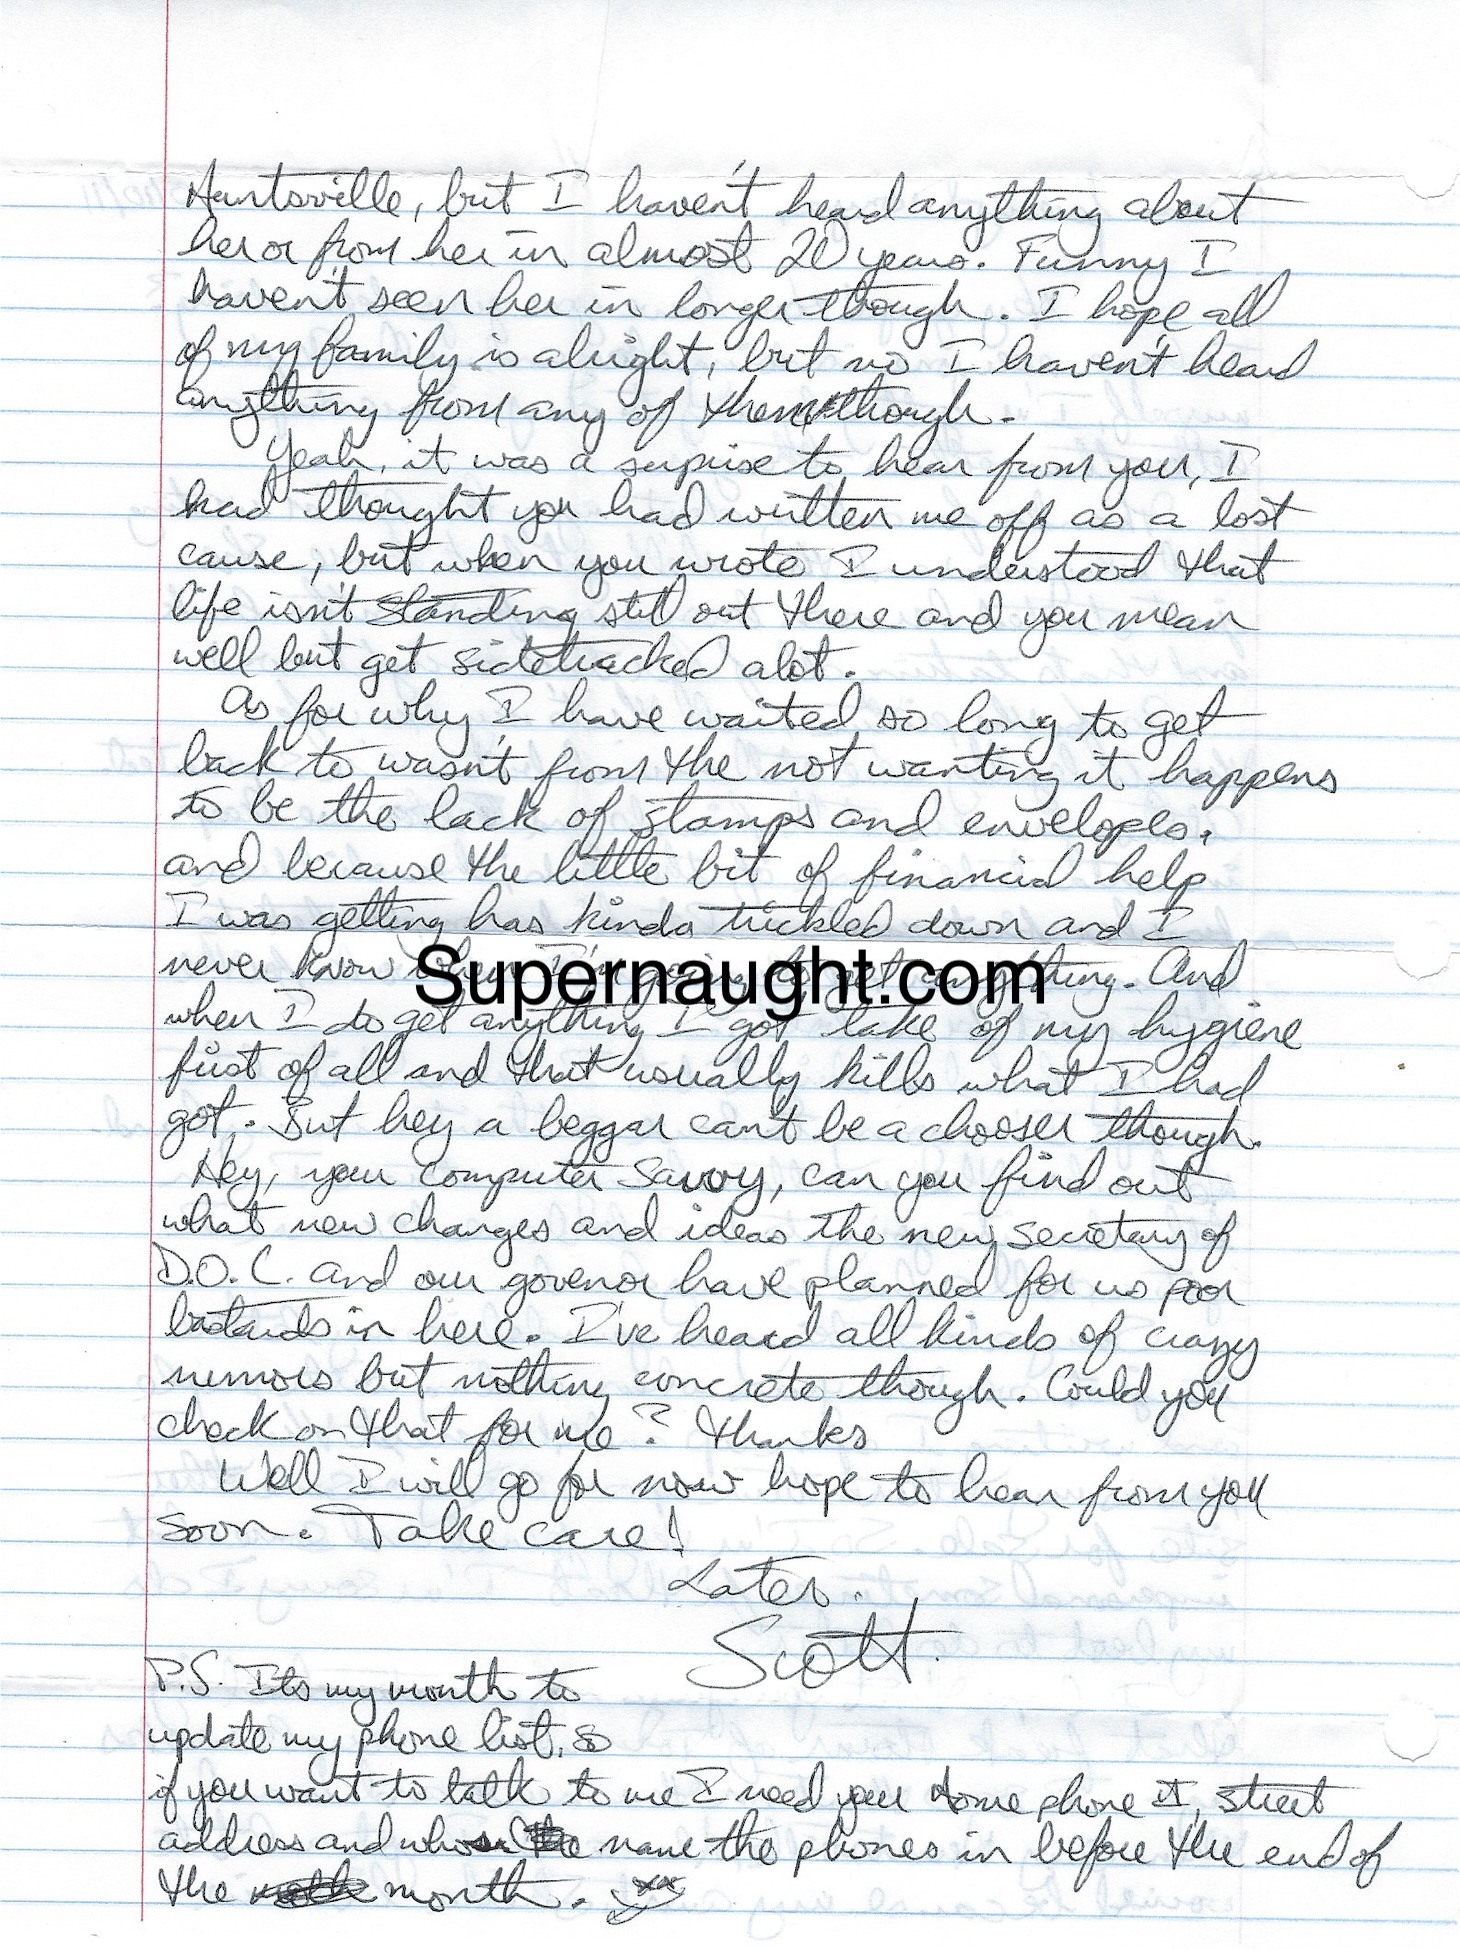 Huntsville, but I haven't heard anything about
her or from her in almost 20 years. Funny I
haven't seen her in longer though. I hope all
of my family is alright, but no I haven't heard
anything from any of them though.
Yeah, it was a surprise to hear from you, I
had thought you had written me off as a lost
cause, but when you wrote I understood that
life isn't standing still out there and you mean
well but get sidetracked alot.
As for why I have waited so long to get
back to wasn't from the not wanting it happens
to be the lack of stamps and envelopes,
and because the little bit of financial help
I was getting has kinda trickled down and I
never know when I'm going to get anything. And
Supernaught.com
when I do get anything I got take of my hygiene
first of all and that usually kills what I had
got. But hey a beggar can't be a chooser though.
Hey, your computer savvy, can you find out
what new changes and ideas the new secretary of
D.O.C. and our govenor have planned for us poor
bastards in here. I've heard all kinds of crazy
rumors but nothing concrete though. Could you
check on that for me? Thanks
Well I will go for now hope to hear from you
soon. Take care!
Later.
Scott.
P.S. Its my month to
update my phone list, so
if you want to talk to me I need your home phone #, street
address and whose name the phones in before the end of
the month.